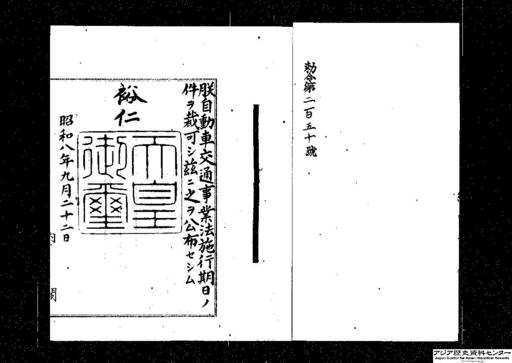 勅令第二百五十號
朕自動車交通事業法施行期日ノ
件ヲ裁可シ茲ニ之ヲ公布セシム
裕仁
天皇
御璽
昭和八年九月二十二日
内閣
アジア歴史資料センター
Japan Center for Asian Historical Records